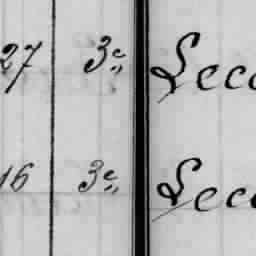 27 3e Leco
16 3e Leco